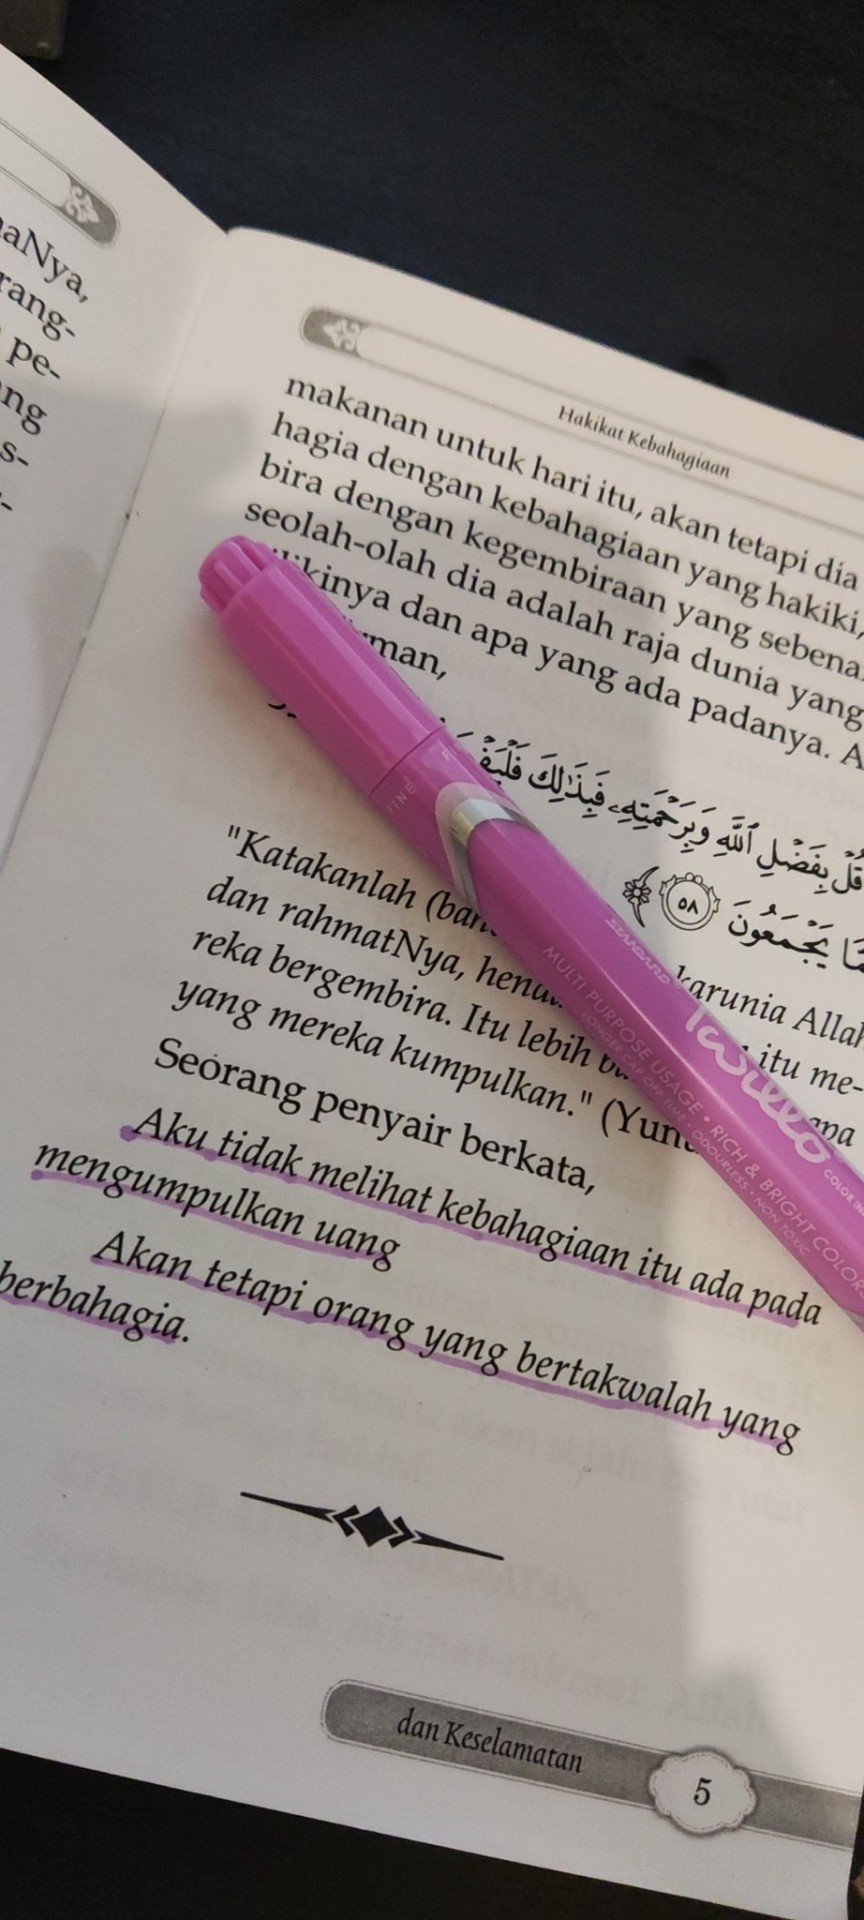 aNya,
rang-
pe-
ng
s-
Hakikat Kebahagiaan
makanan untuk hari itu, akan tetapi dia
hagia dengan kebahagiaan yang hakiki,
bira dengan kegembiraan yang sebena
seolah-olah dia adalah raja dunia yang
ilikinya dan apa yang ada padanya. A
man,
قُلْ بِفَضْلِ ٱللَّهِ وَبِرَحْمَتِهِۦ فَبِذَٰلِكَ
يَجْمَعُونَ ٥٨
"Katakanlah karunia Allah
dan rahmatNya, itu me-
reka bergembira. Itu lebih apa
yang mereka kumpulkan."
Seorang penyair berkata,
Aku tidak melihat kebahagiaan itu ada pada
mengumpulkan uang
Akan tetapi orang yang bertakwalah yang
berbahagia.
dan Keselamatan
5
FINE
STANDARD
Twillo
MULTI PURPOSE USAGE • RICH & BRIGHT COLORS
LONGER CAP OFF TIME • ODOURLESS • NON TOXIC
COLOR IN